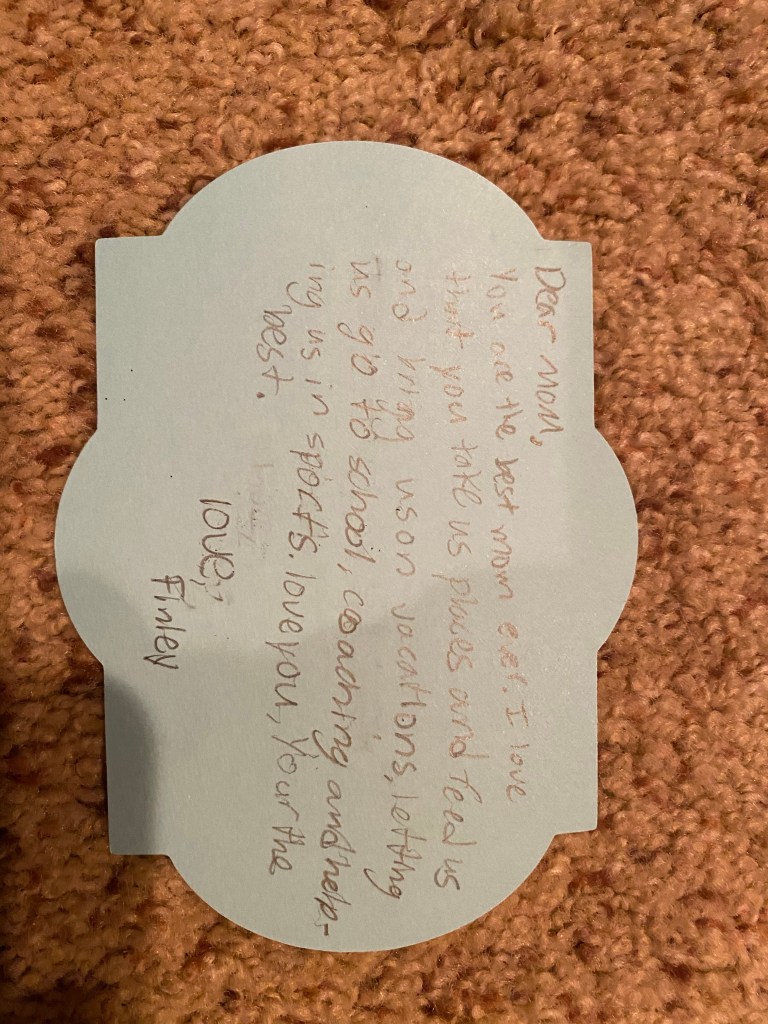 Dear mom,
You are the best mom ever. I love
that you take us places and feed us
and bring us on vacations, letting
us go to school, coaching and help-
ing us in sports. love you, Your the
best.
love,
Finley